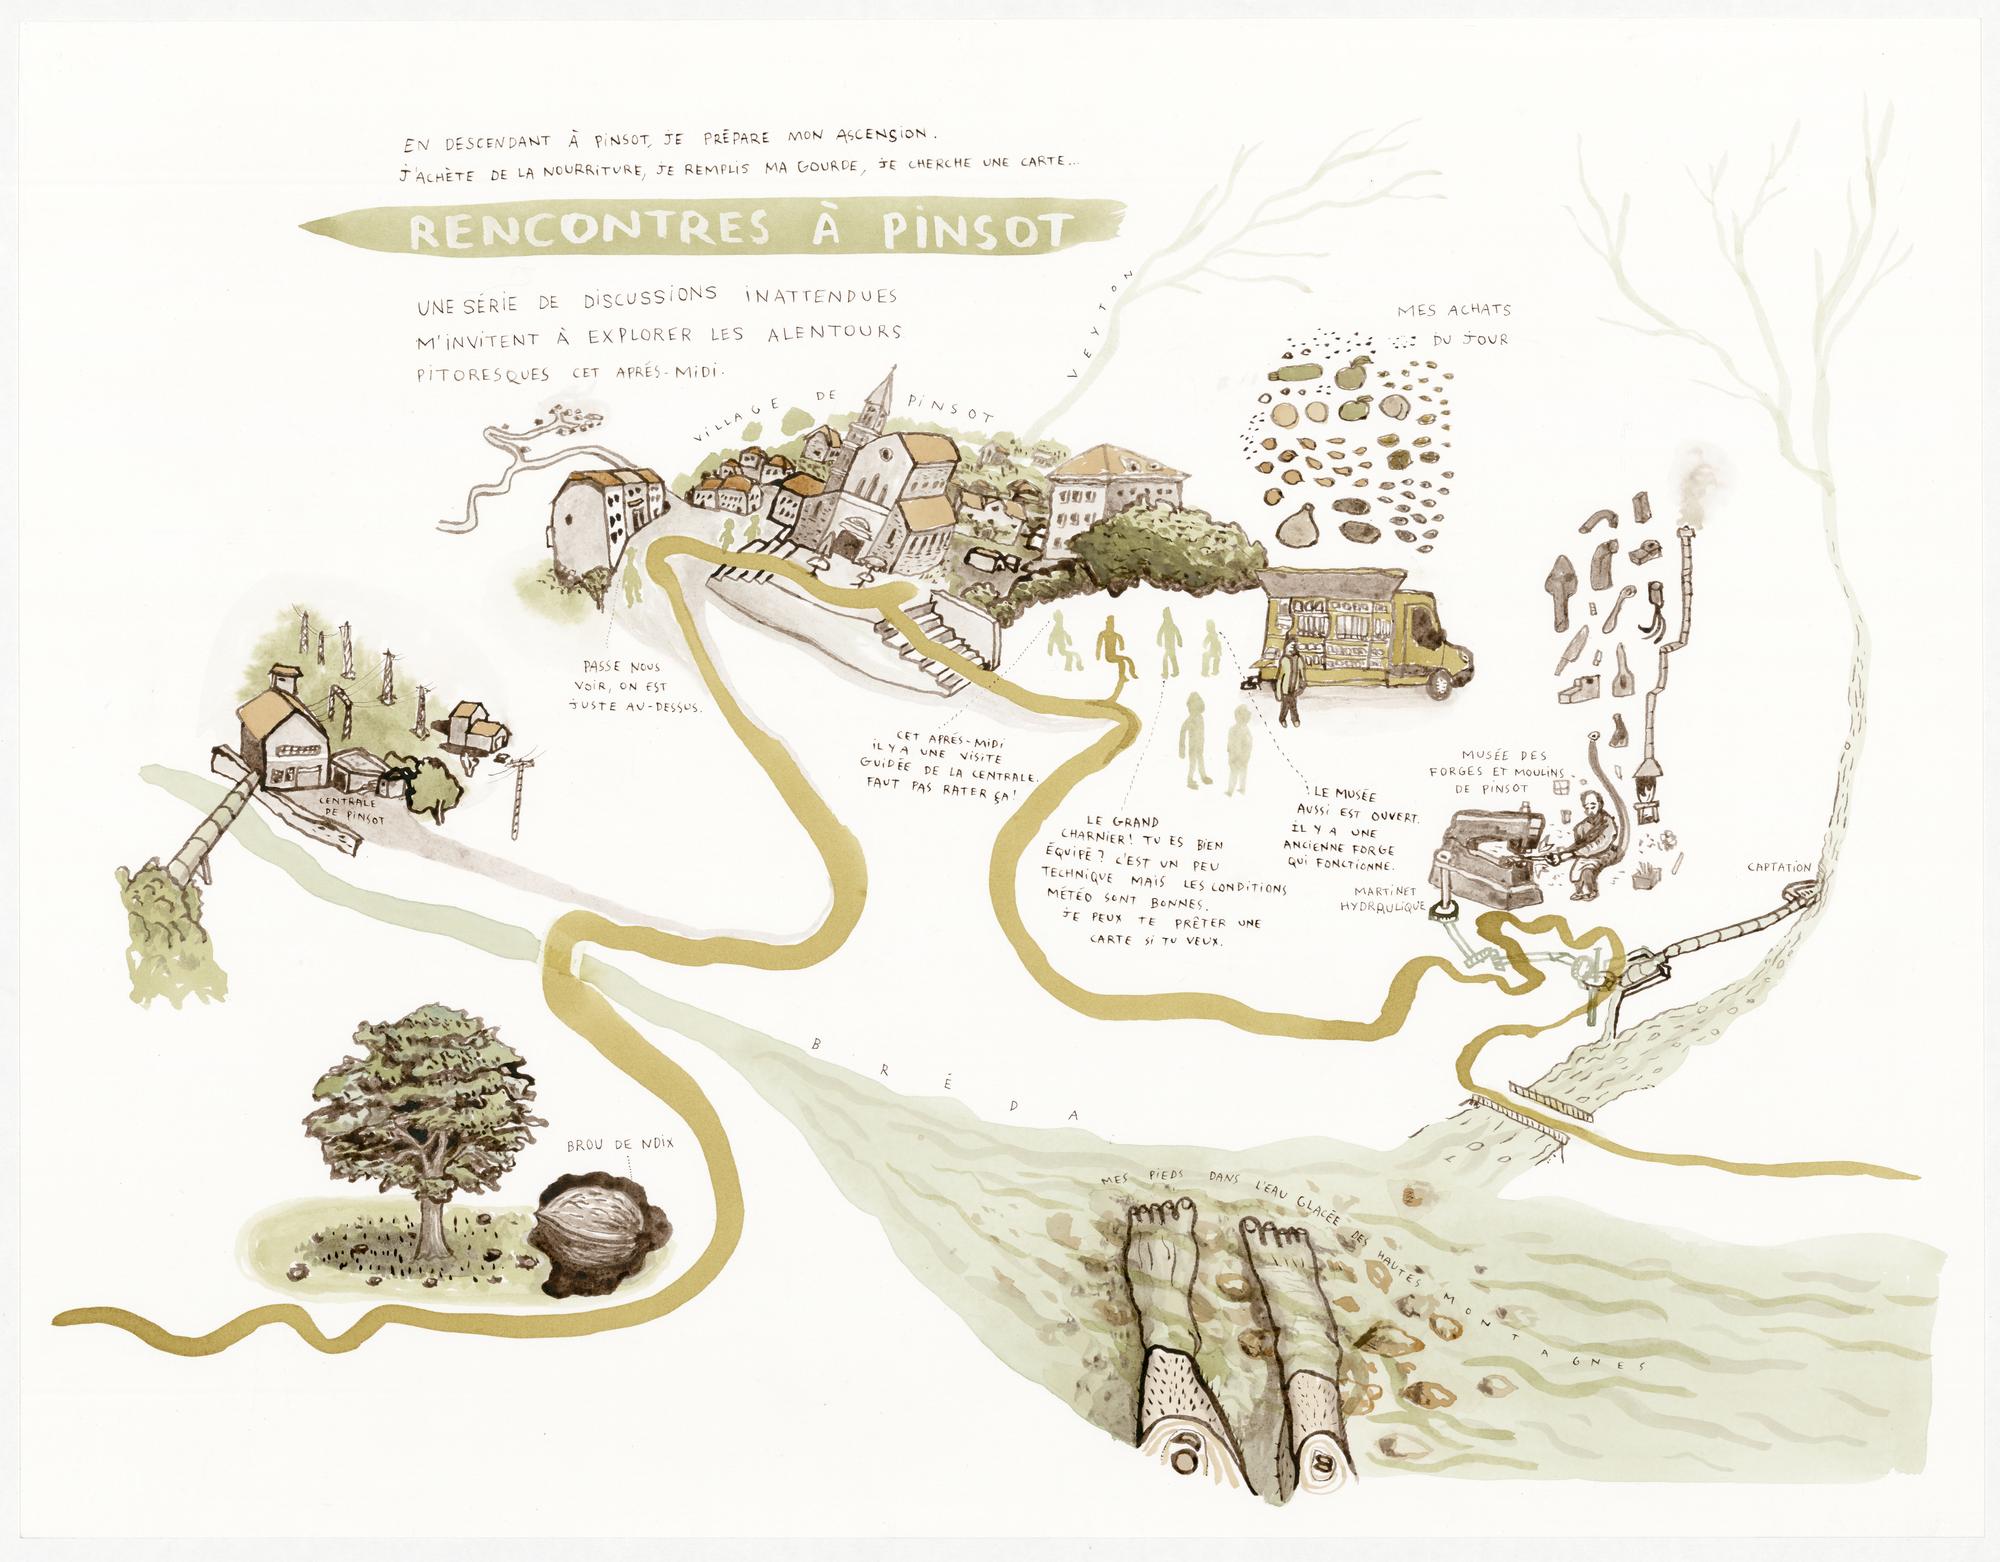 EN DESCENDANT À PINSOT, JE PRÉPARE MON ASCENSION.
J'ACHÈTE DE LA NOURRITURE, JE REMPLIS MA GOURDE, JE CHERCHE UNE CARTE...
RENCONTRES À PINSOT
UNE SÉRIE DE DISCUSSIONS INATTENDUES
M'INVITENT À EXPLORER LES ALENTOURS
PITORESQUES CET APRÉS-MIDI.
VEYTON
MES ACHATS
DU JOUR
VILLAGE DE PINSOT
PASSE NOUS
VOIR, ON EST
JUSTE AU-DESSUS.
CET APRÉS-MIDI
IL Y A UNE VISITE
GUIDÉE DE LA CENTRALE.
FAUT PAS RATER ÇA!
LE GRAND
CHARNIER! TU ES BIEN
ÉQUIPÉ? C'EST UN PEU
TECHNIQUE MAIS LES CONDITIONS
MÉTÉO SONT BONNES.
JE PEUX TE PRÊTER UNE
CARTE SI TU VEUX.
LE MUSÉE
AUSSI EST OUVERT.
IL Y A UNE
ANCIENNE FORGE
QUI FONCTIONNE.
MUSÉE DES
FORGES ET MOULINS
DE PINSOT
MARTINET
HYDRAULIQUE
CAPTATION
CENTRALE
DE PINSOT
BRÉDA
BROU DE NOIX
MES PIEDS DANS L'EAU GLACÉE DES HAUTES MONTAGNES